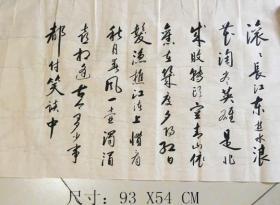 滚〻長江東逝水浪
花淘尽英雄是非
成敗轉頭空青山依
舊在幾度夕阳红白
髮漁樵江渚上慣看
秋月春風一壺濁酒
喜相逢古今多少事
都付笑談中
尺寸: 93 X54 CM